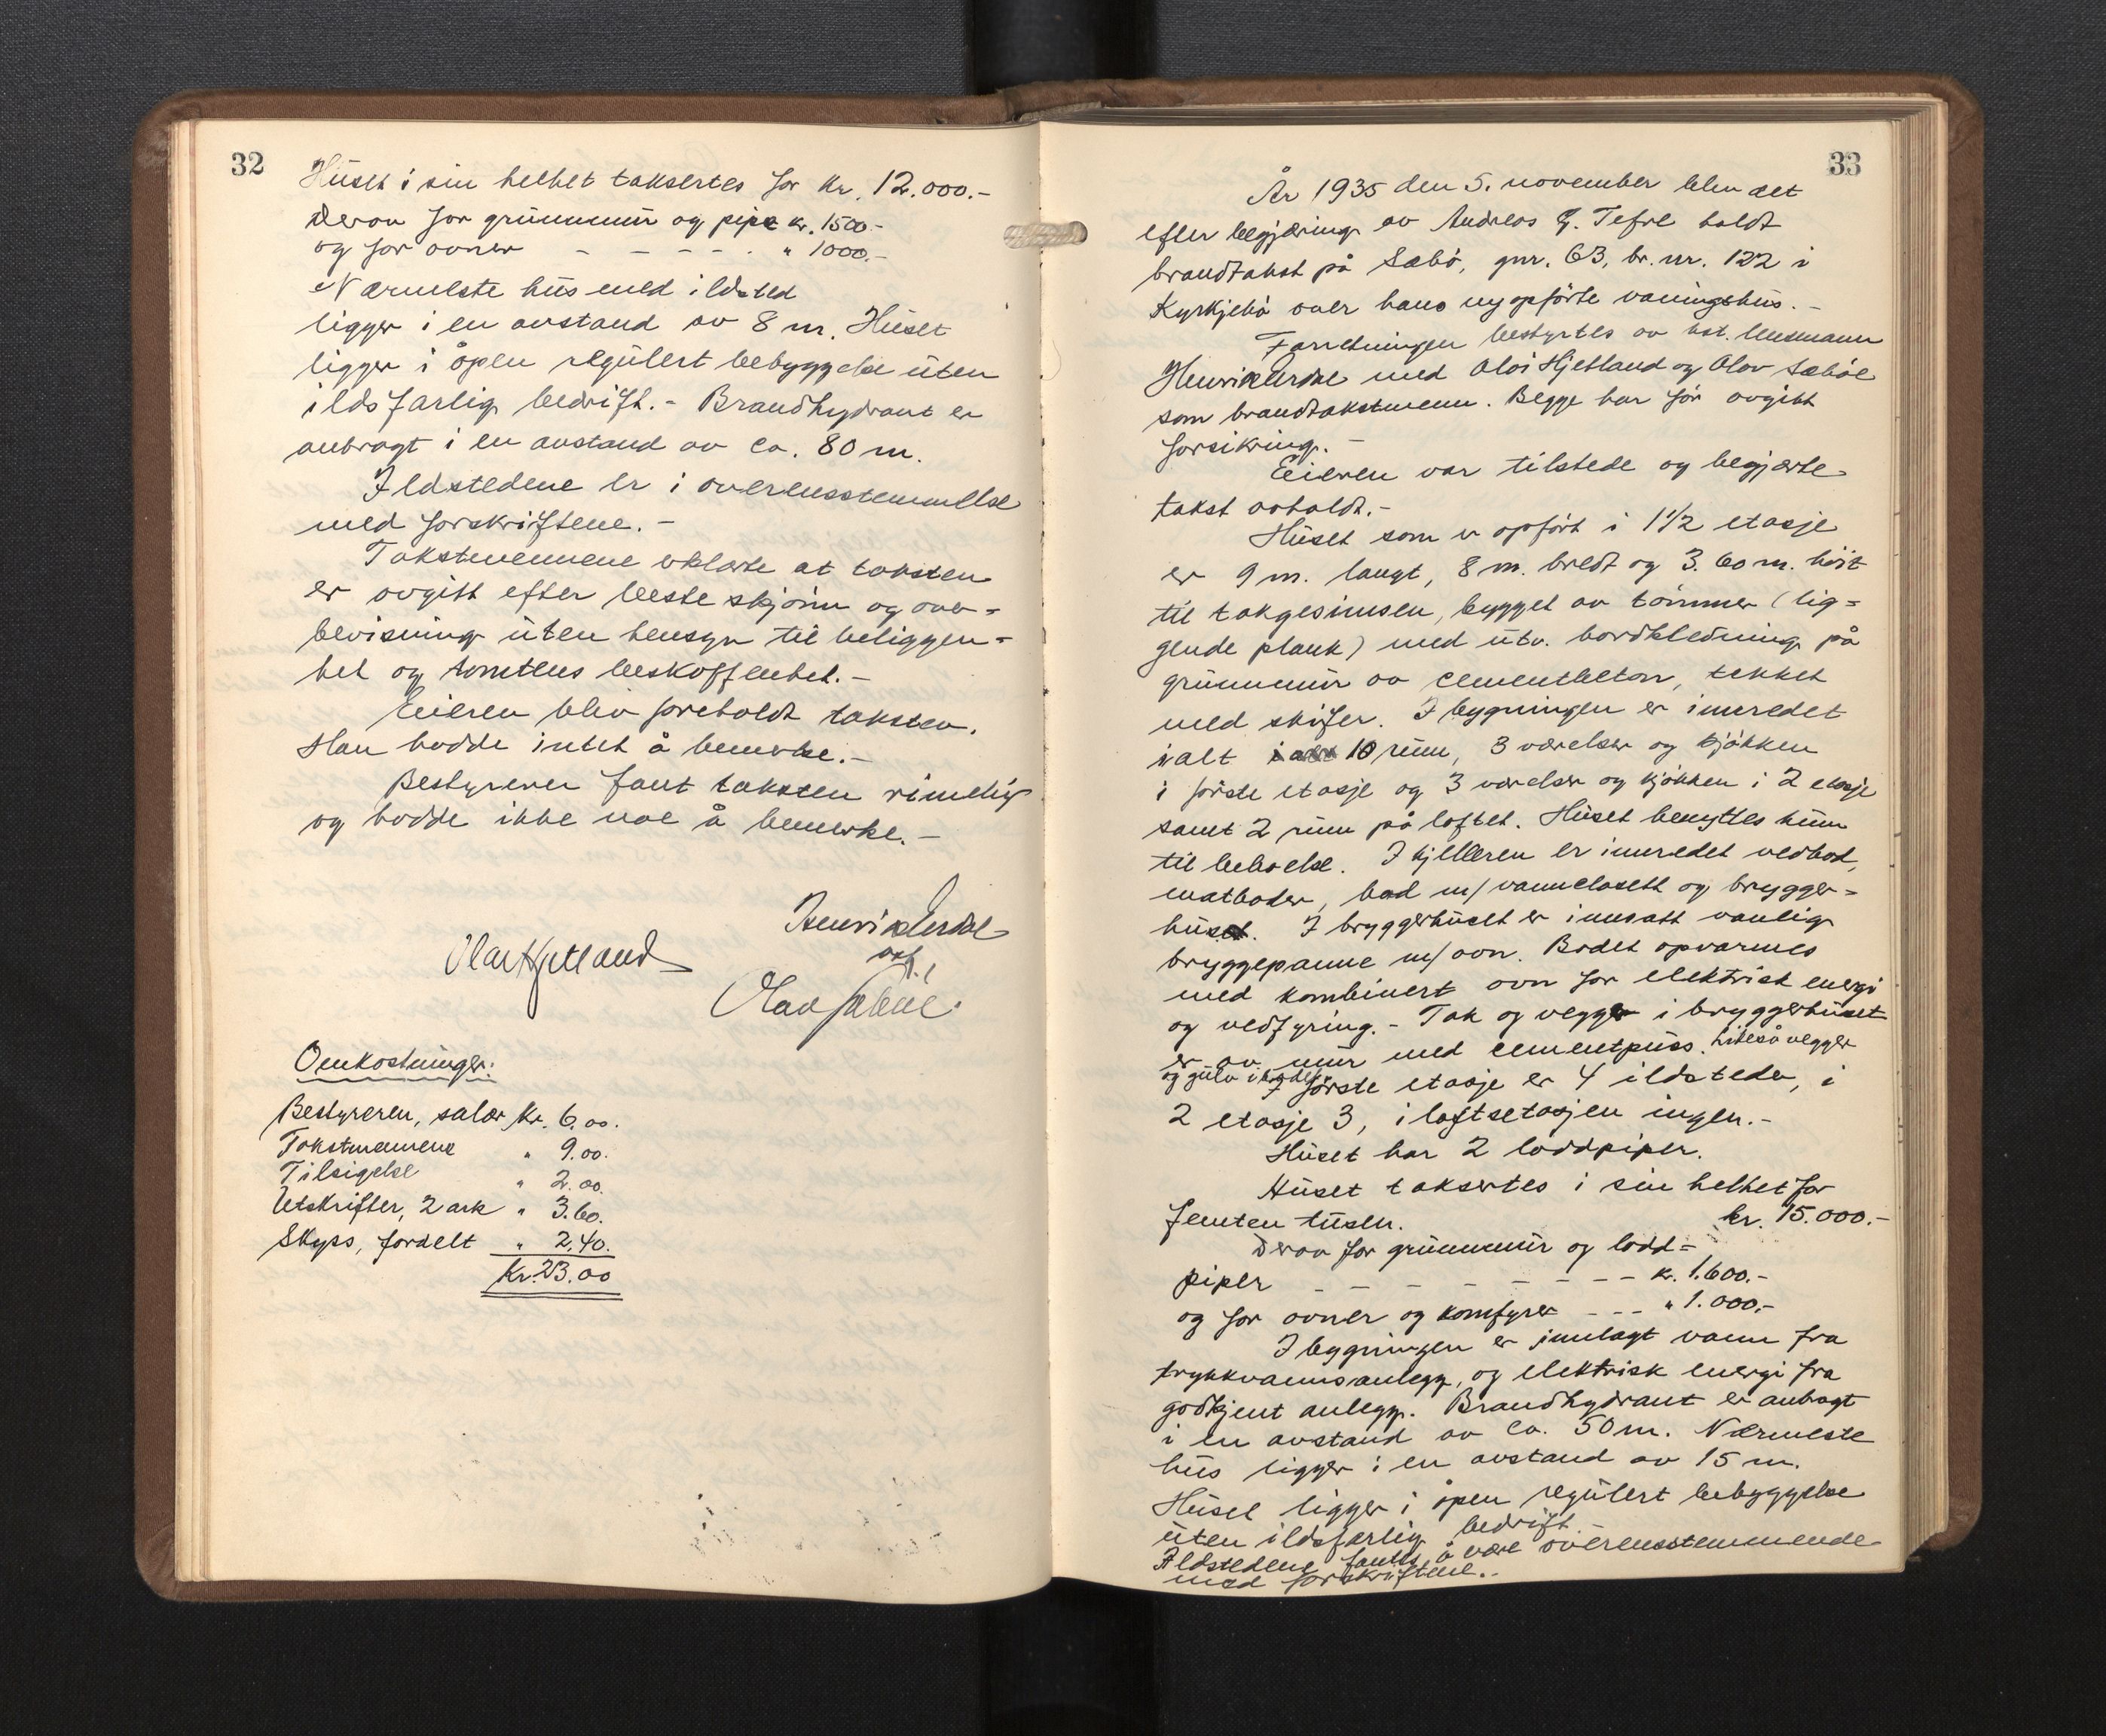 32
Huset i sin helhet taksertes for kr. 12.000.-
derav for grunnmur og pipe kr. 1500.-
og for ovner - - - - . " 1000.-
Nærmeste hus med ildsted
ligger i en avstand av 8 m. Huset
ligger i åpen regulert bebyggelse uten
ildsfarlig bedrift. - Brandhydrant er
anbragt i en avstand av ca. 80 m.
Ildstedene er i overensstemmelse
med forskriftene. -
Takstmennene erklærte at taksten
er avgitt efter beste skjønn og over=
bevisning uten hensyn til beliggen=
het og tomtens beskaffenhet. -
Eieren blev foreholdt taksten.
Han hadde intet å bemerke. -
Bestyreren fant taksten rimelig
og hadde ikke noe å bemerke. -
Henrik Erdal
Olai Hjetland
Olav Sæbøe
Omkostninger:
Bestyreren, salær kr. 6.00.
Takstmennene " 9.00.
Tilsigelse " 2.00.
Utskrifter, 2 ark " 3.60.
Skyss, fordelt " 2.40.
Kr. 23.00
33
År 1935 den 5. november blev det
efter begjæring av Andreas G. Tefre holdt
brandtakst på Sæbø, gnr. 63, br. nr. 122 i
Kyrkjebø over hans nyopførte våningshus. -
Forretningen bestyrtes av kst. lensmann
Henrik Erdal med Olai Hjetland og Olav Sæbøe
som brandtakstmenn. Begge har før avgitt
forsikring. -
Eieren var tilstede og begjærte
takst avholdt. -
Huset som er opført i 1 1/2 etasje
er 9 m. langt, 8 m. bredt og 3.60 m. høit
til takgesimsen, bygget av tømmer (lig=
gende plank) med utv. bordkledning på
grunnmur av cementbeton, tekket
med skifer. I bygningen er innredet
ialt 10 rum, 3 værelser og kjøkken
i første etasje og 3 værelser og kjøkken i 2 etasje
samt 2 rum på loftet. Huset benyttes kun
til beboelse. I kjelleren er innredet vedbod,
matboder, bad m/ vannclosett og brygger=
hus. I bryggerhuset er innsatt vanlig
bryggepanne m/ ovn. Badet opvarmes
med kombinert ovn for elektrisk energi
og vedfyring. - Tak og vegger i bryggerhuset
er av mur med cementpuss. Likeså vegger
og gulv i badet. I første etasje er 4 ildsteder, i
2 etasje 3, i loftsetasjen ingen. -
Huset har 2 loddpiper.
Huset taksertes i sin helhet for
femten tusen. kr. 15.000.-
Derav for grunnmur og lodd=
piper - - - - - - - - kr. 1.600.-
og for ovner og komfyrer - - - " 1.000.-
I bygningen er innlagt vann fra
trykkvannsanlegg, og elektrisk energi fra
godkjent anlegg. Brandhydrant er anbragt
i en avstand av ca. 50 m. Nærmeste
hus ligger i en avstand av 15 m.
Huset ligger i åpen regulert bebyggelse
uten ildsfarlig bedrift. -
Ildstedene fantes å være overensstemmende
med forskriftene. -